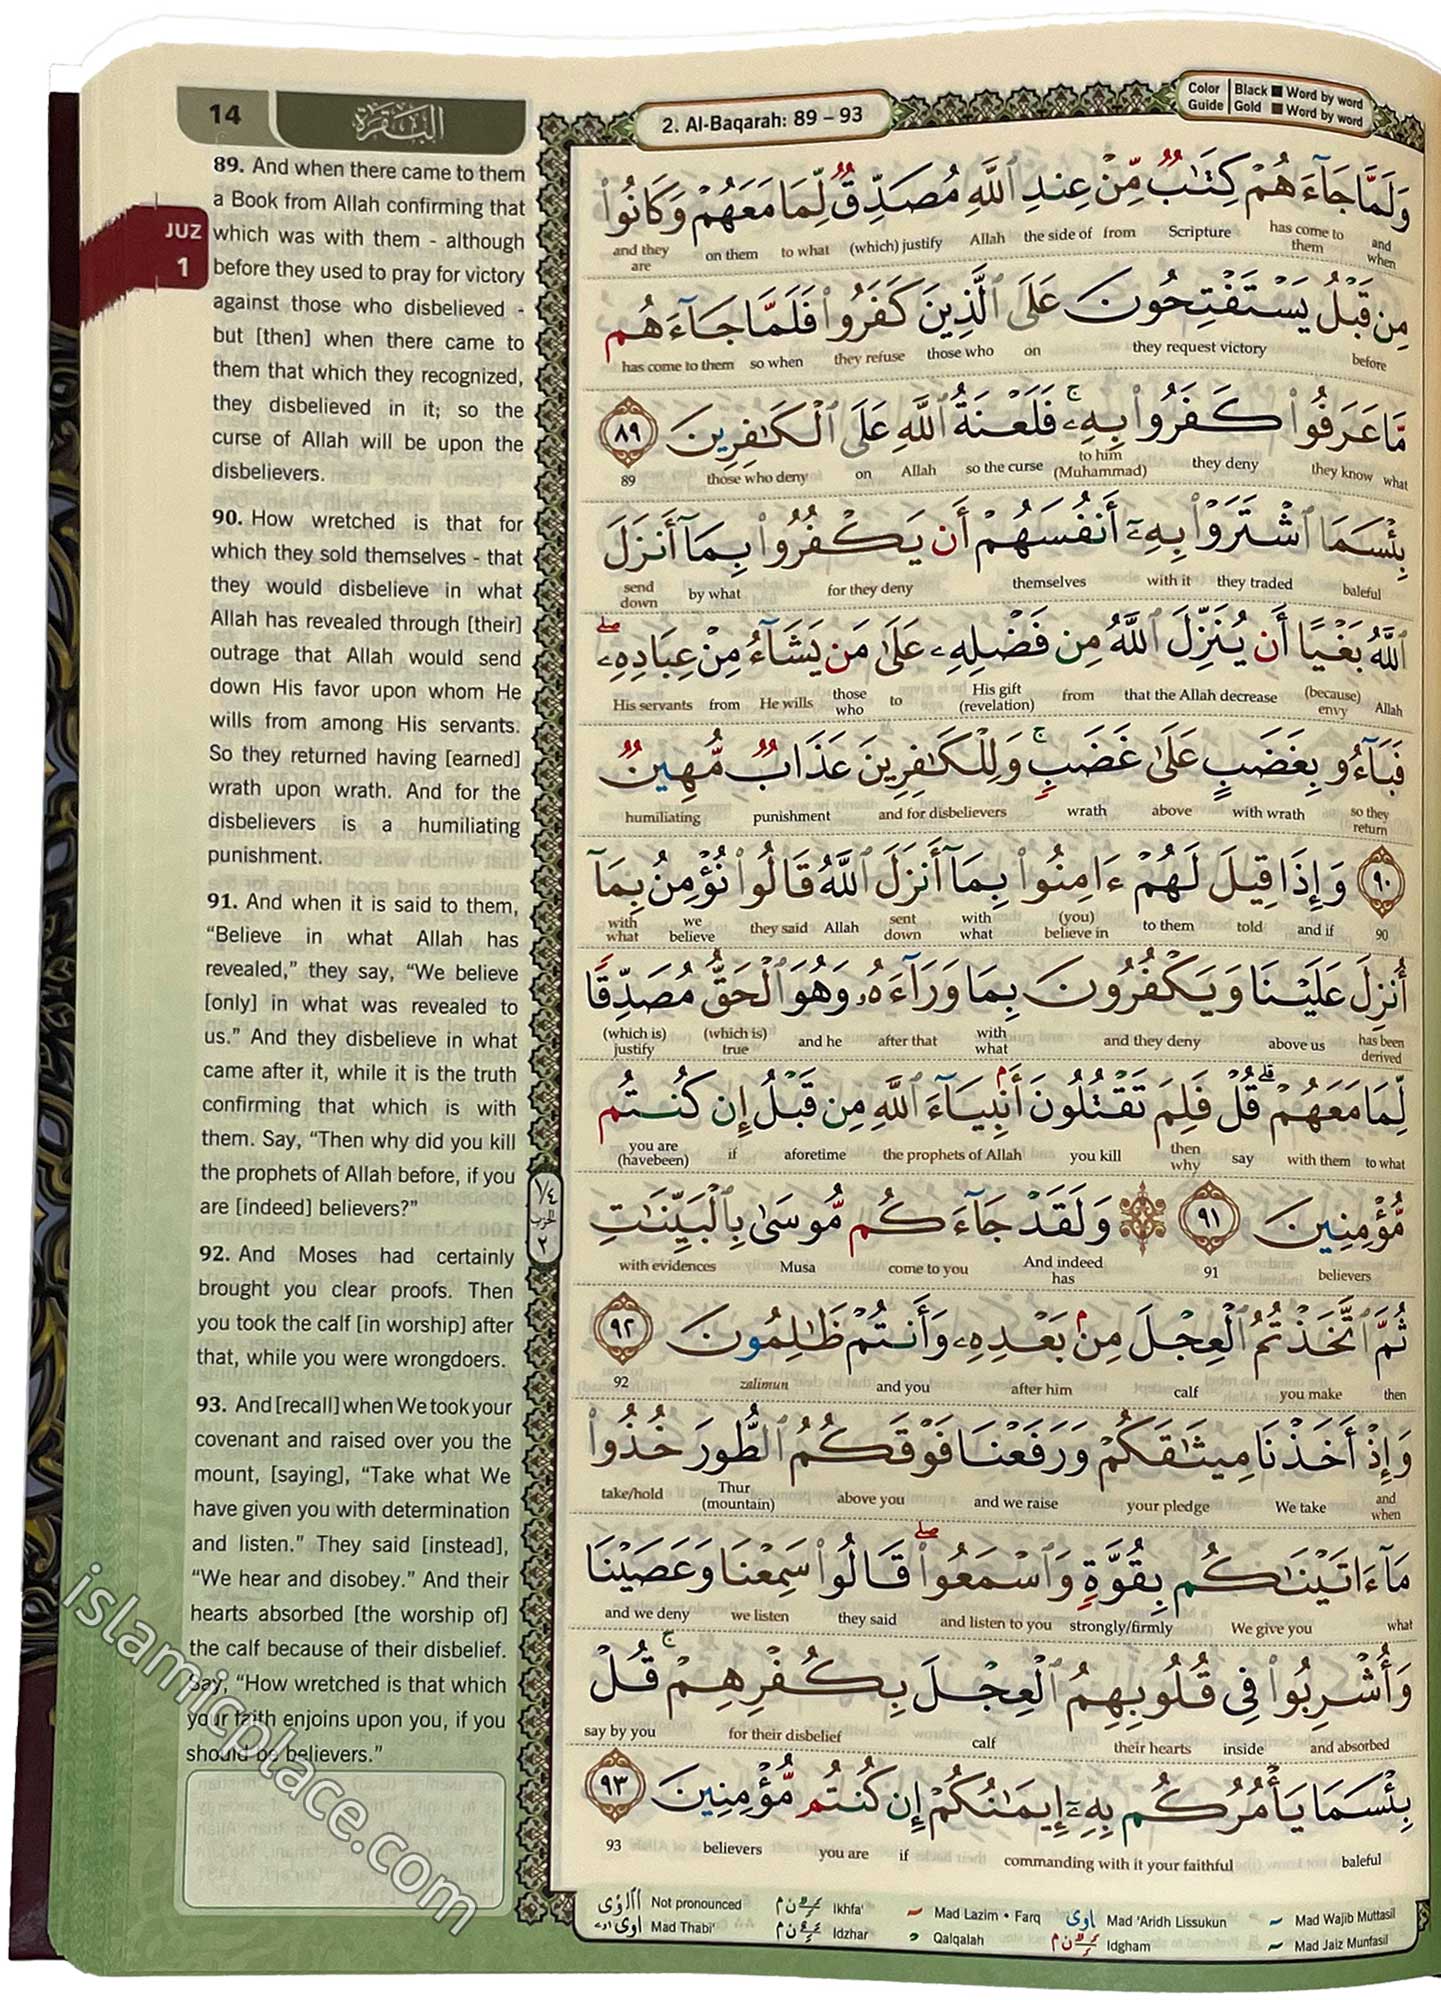 14
البقرة
2. Al-Baqarah: 89 – 93
Color Guide
Black ■ Word by word
Gold ■ Word by word
JUZ
1
89. And when there came to them
a Book from Allah confirming that
which was with them - although
before they used to pray for victory
against those who disbelieved -
but [then] when there came to
them that which they recognized,
they disbelieved in it; so the
curse of Allah will be upon the
disbelievers.
90. How wretched is that for
which they sold themselves - that
they would disbelieve in what
Allah has revealed through [their]
outrage that Allah would send
down His favor upon whom He
wills from among His servants.
So they returned having [earned]
wrath upon wrath. And for the
disbelievers is a humiliating
punishment.
91. And when it is said to them,
“Believe in what Allah has
revealed,” they say, “We believe
[only] in what was revealed to
us.” And they disbelieve in what
came after it, while it is the truth
confirming that which is with
them. Say, “Then why did you kill
the prophets of Allah before, if you
are [indeed] believers?”
92. And Moses had certainly
brought you clear proofs. Then
you took the calf [in worship] after
that, while you were wrongdoers.
93. And [recall] when We took your
covenant and raised over you the
mount, [saying], “Take what We
have given you with determination
and listen.” They said [instead],
“We hear and disobey.” And their
hearts absorbed [the worship of]
the calf because of their disbelief.
Say, “How wretched is that which
your faith enjoins upon you, if you
should be believers.”
وَلَمَّا جَآءَهُمْ كِتَٰبٌ مِّنْ عِندِ ٱللَّهِ مُصَدِّقٌ لِّمَا مَعَهُمْ وَكَانُوا۟
and when has come to them Scripture from the side of Allah (which) justify to what on them and they are
مِن قَبْلُ يَسْتَفْتِحُونَ عَلَى ٱلَّذِينَ كَفَرُوا۟ فَلَمَّا جَآءَهُم
before they request victory on those who they refuse so when has come to them
مَّا عَرَفُوا۟ كَفَرُوا۟ بِهِۦ ۚ فَلَعْنَةُ ٱللَّهِ عَلَى ٱلْكَٰفِرِينَ ٨٩
what they know they deny to him (Muhammad) so the curse Allah on those who deny 89
بِئْسَمَا ٱشْتَرَوْا۟ بِهِۦٓ أَنفُسَهُمْ أَن يَكْفُرُوا۟ بِمَآ أَنزَلَ
baleful they traded with it themselves for they deny by what send down
ٱللَّهُ بَغْيًا أَن يُنَزِّلَ ٱللَّهُ مِن فَضْلِهِۦ عَلَىٰ مَن يَشَآءُ مِنْ عِبَادِهِۦ ۖ
Allah (because) envy that the Allah decrease from His gift (revelation) to those who He wills from His servants
فَبَآءُو بِغَضَبٍ عَلَىٰ غَضَبٍ ۚ وَلِلْكَٰفِرِينَ عَذَابٌ مُّهِينٌ
so they return with wrath above wrath and for disbelievers punishment humiliating
٩٠ وَإِذَا قِيلَ لَهُمْ ءَامِنُوا۟ بِمَآ أَنزَلَ ٱللَّهُ قَالُوا۟ نُؤْمِنُ بِمَآ
90 and if told to them (you) believe in with what sent down Allah they said we believe with what
أُنزِلَ عَلَيْنَا وَيَكْفُرُونَ بِمَا وَرَآءَهُۥ وَهُوَ ٱلْحَقُّ مُصَدِّقًا
has been derived above us and they deny with what after that and he (which is) true (which is) justify
لِّمَا مَعَهُمْ ۗ قُلْ فَلِمَ تَقْتُلُونَ أَنۢبِيَآءَ ٱللَّهِ مِن قَبْلُ إِن كُنتُم
to what with them say then why you kill the prophets of Allah aforetime if you are (havebeen)
مُّؤْمِنِينَ ٩١ ۞ وَلَقَدْ جَآءَكُم مُّوسَىٰ بِٱلْبَيِّنَٰتِ
believers 91 And indeed has come to you Musa with evidences
١/٤ الحزب ٢
ثُمَّ ٱتَّخَذْتُمُ ٱلْعِجْلَ مِنۢ بَعْدِهِۦ وَأَنتُمْ ظَٰلِمُونَ ٩٢
then you make calf after him and you zalimun 92
وَإِذْ أَخَذْنَا مِيثَٰقَكُمْ وَرَفَعْنَا فَوْقَكُمُ ٱلطُّورَ خُذُوا۟
and when We take your pledge and we raise above you Thur (mountain) take/hold
مَآ ءَاتَيْنَٰكُم بِقُوَّةٍ وَٱسْمَعُوا۟ ۖ قَالُوا۟ سَمِعْنَا وَعَصَيْنَا
what We give you strongly/firmly and listen to you they said we listen and we deny
وَأُشْرِبُوا۟ فِى قُلُوبِهِمُ ٱلْعِجْلَ بِكُفْرِهِمْ ۚ قُلْ
and absorbed inside their hearts calf for their disbelief say by you
بِئْسَمَا يَأْمُرُكُم بِهِۦٓ إِيمَٰنُكُمْ إِن كُنتُم مُّؤْمِنِينَ ٩٣
baleful commanding with it your faithful if you are believers 93
Not pronounced Ikhfa' Mad Lazim • Farq Mad 'Aridh Lissukun Mad Wajib Muttasil
Mad Thabi' Idzhar Qalqalah Idgham Mad Jaiz Munfasil
islamicplace.com